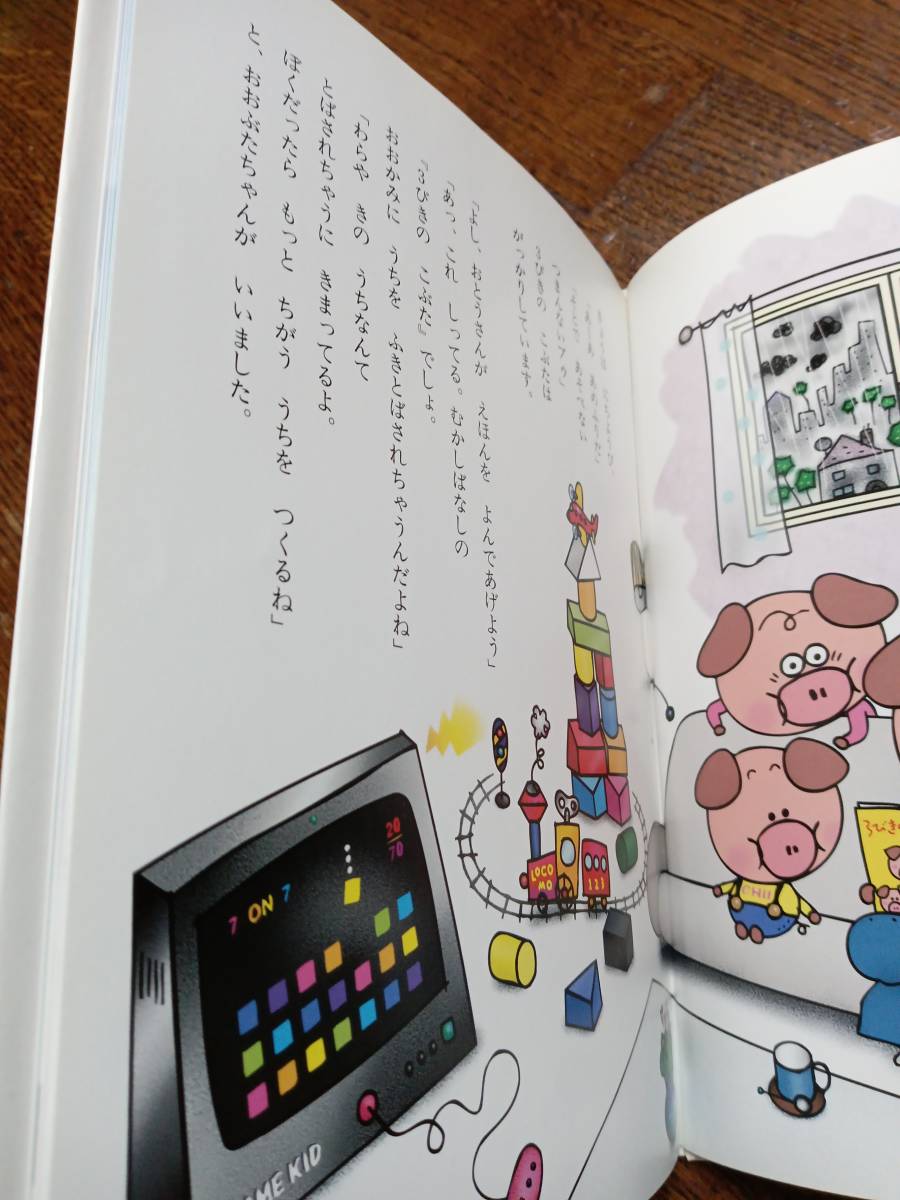 つまんないアめ」
3びきの こぶたは
がっかりしています。
「よし、おとうさんが えほんを よんであげよう」
「あっ、これ しってる。むかしばなしの
『3びきの こぶた』でしょ。
おおかみに うちを ふきとばされちゃうんだよね」
「わらや きの うちなんて
とばされちゃうに きまってるよ。
ぼくだったら もっと ちがう うちを つくるね」
と、おおぶたちゃんが いいました。
7 ON 7
20
70
LOCO
MO
123
AME KID
CHII
3びきの